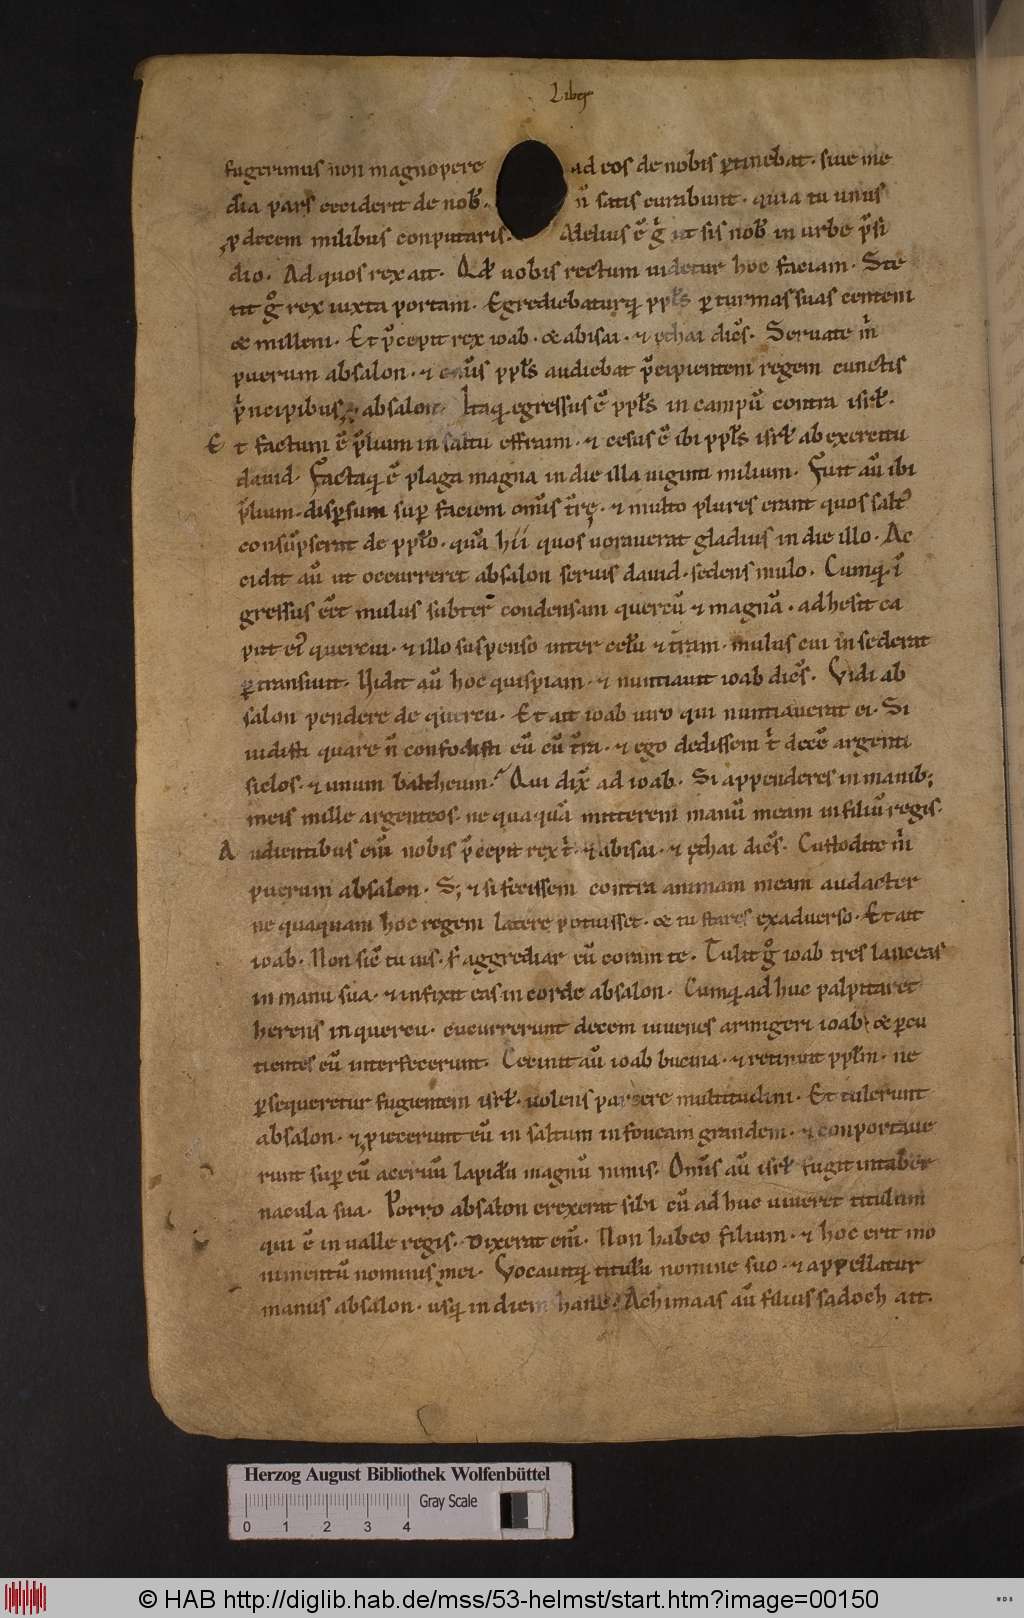 Liber
fugerimus non magnopere ad eos de nobis p̱tinebat. siue me
dia pars ceciderit de nob̅. n̅ satis curabunt. quia tu unus
ꝓ decem milibus conputaris. Melius ē gͥ ut sis nob̅ in urbe p̅si
dio. Ad quos rex ait. Qđ uobis rectum uidetur hoc faciam. Ste
tit gͦ rex iuxta portam. Egrediebaturq; ppl̅s p̱ turmas suas centeni
& milleni. Et p̅cepit rex ioab. & abisai. & ethai dic̅s. Seruate m̅
puerum absalon. & om̅s ppl̅s audiebat p̅cipientem regem cunctis
pͥncipibus, ꝓ absalon. Itaq; egressus ē ppl̅s in campū contra isrl̅.
Et factum ē p̅lium in saltu effraim. & cesus ē ibi ppl̅s isrl̅ ab exercitu
dauid. Factaq; ē plaga magna in die illa uiginti milium. Fuit au̅ ibi
p̅lium. disp̱sum sup̱ faciem om̅is t̅rę. & multo plures erant quos salt᷒
consūpserat de ppl̅o. quā hii quos uorauerat gladius in die illo. Ac
cidit au̅ ut occurreret absalon seruis dauid. sedens mulo. Cumq; ī
gressus eēt mulus subter condensam quercū & magnā. adhesit ca
put ei᷒ quercui. & illo suspenso inter cęlū & t̅ram. mulus cui insederat
p̱transiuit. Uidit au̅ hoc quispiam. & nuntiauit ioab dic̅s. Vidi ab
salon pendere de quercu. Et ait ioab uiro qui nuntiauerat ei. Si
uidisti quare n̅ confodisti eū cū t̅ra. & ego dedissem tͥ decē argenti
siclos. & unum baltheum? Qui dix̅ ad ioab. Si appenderes in manib;
meis mille argenteos. ne quaquā mitterem manū meam in filiū regis.
Audientibus em̅ nobis p̅cepit rex tͥ. & abisai. & ethai dic̅s. Custodite m̅
puerum absalon. S; & si fecissem contra animam meam audacter
ne quaquam hoc regem latere potuisset. & tu stares exaduerso. Et ait
ioab. Non sic̅ tu uis. s̅ aggrediar eū coram te. Tulit gͦ ioab tres lanceas
in manu sua. & infixit eas in corde absalon. Cumq; ad huc palpitaret
herens in quercu. cucurrerunt decem iuuenes armigeri ioab. & p̱cu
tientes eū interfecerunt. Cecinit au̅ ioab bucina. & retinuit ppl̅m. ne
p̱sequeretur fugientem isrl̅. uolens parcere multitudini. Et tulerunt
absalon. & ꝓiecerunt eū in saltum in foueam grandem. & conportaue
runt sup̱ eū aceruū lapidū magnū nimis. Om̅s au̅ isrl̅ fugit in taber
nacula sua. Porro absalon erexerat sibi cū ad huc uiueret titulum
qui ē in ualle regis. Dixerat em̅. Non habeo filium. & hoc erit mo
nimentū nominis mei. Vocauitq; titulū nomine suo. & appellatur
manus absalon. usq; in diem hanc. Achimaas au̅ filius sadoch ait.
Herzog August Bibliothek Wolfenbüttel
Gray Scale
0 1 2 3 4
© HAB http://diglib.hab.de/mss/53-helmst/start.htm?image=00150